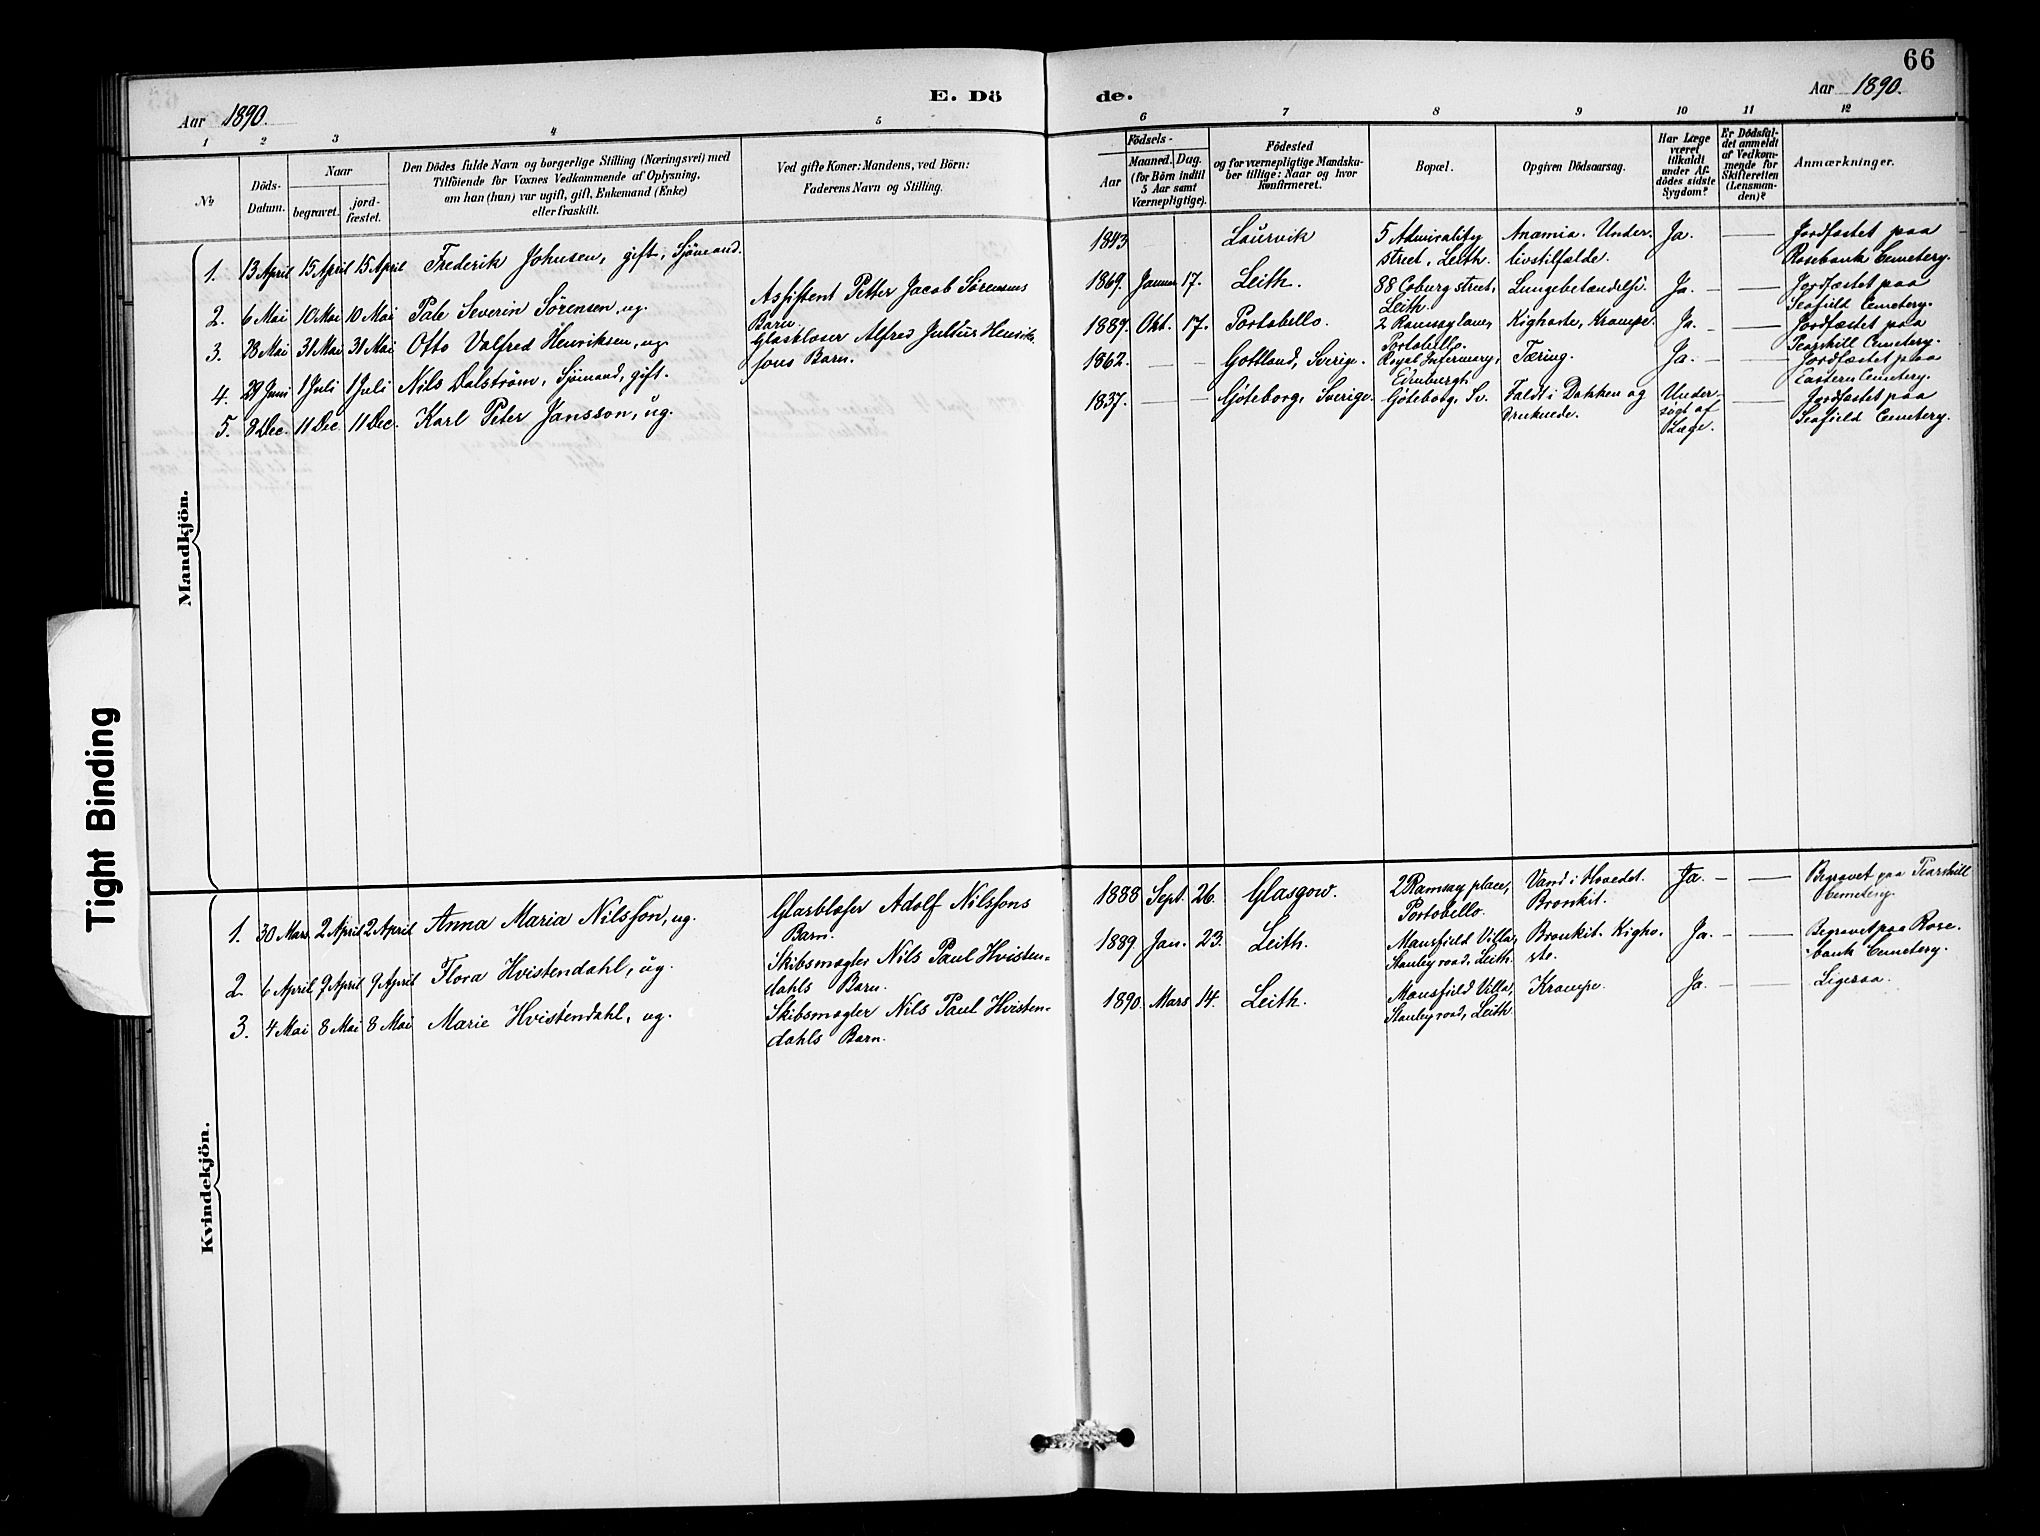 66
Aar 1890.
E. Dö de.
Aar 1890.
1 2 3 4 5 6 7 8 9 10 11 12
№
Döds-
Datum.
Naar
begravet.
jord-
fæstet.
Den Dödes fulde Navn og borgerlige Stilling (Næringsvei) med
Tilföiende for Voxnes Vedkommende af Oplysning,
om han (hun) var ugift, gift, Enkemand (Enke)
eller fraskilt.
Ved gifte Koner: Mandens, ved Börn:
Faderens Navn og Stilling.
Födsels-
Aar
Maaned. Dag.
(for Börn indtil
5 Aar samt
Værnepligtige).
Födested
og for værnepligtige Mandska-
ber tillige: Naar og hvor
konfirmeret.
Bopæl.
Opgiven Dödsaarsag.
Har Læge
været
tilkaldt
under Af-
dödes sidste
Sygdom?
Er Dödsfal-
det anmeldt
af Vedkom-
mende for
Skifteretten
(Lensman-
den)?
Anmærkninger.
Mandkjön.
1. 13 April 15 April 15 April Frederik Johnsen, gift, Sjømand.
1843 Laurvik
5 Admirality
street, Leith.
Anæmia. Under-
livstilfælde.
Ja.
Jordfæstet paa
Rosebank Cemetery.
2. 6 Mai 10 Mai 10 Mai Pale Severin Sørensen, ug.
Assistent Petter Jacob Sørensens
Barn.
1869. Januar 17. Leith.
88 Coburg street,
Leith.
Lungebetændelse.
Ja.
Jordfæstet paa
Seafield Cemetery.
3. 28 Mai 31 Mai 31 Mai Otto Valfred Henriksen, ug.
Glasbloser Alfred Julius Henrik-
sons Barn.
1889. Okt. 17. Portobello.
2 Ramsay lane,
Portobello.
Kighoste, Krampe.
Ja.
Jordfæstet paa
Piershill Cemetery.
4. 29 Juni 1 Juli 1 Juli Nils Dalström, Sjömand, gift.
1862. Gottland, Sverige.
Royal Infermery,
Edinburgh.
Tæring.
Ja.
Jordfæstet paa
Eastern Cemetery.
5. 8 Dec. 11 Dec. 11 Dec. Karl Peter Jansson, ug.
1837. Göteborg, Sverige.
Göteborg, Sv.
Faldt i Dokken og
druknede.
Under-
søgt af
Læge.
Jordfæstet paa
Seafield Cemetery.
Kvindekjön.
1. 30 Mars 2 April 2 April Anna Maria Nilsson, ug.
Glasblæser Adolf Nilssons
Barn.
1888 Sept. 26. Glasgow.
2 Ramsay place,
Portobello.
Vand i Hovedet.
Bronkit.
Ja.
Begravet paa Piershill
Cemetery.
2. 6 April 9 April 9 April Flora Hvistendahl, ug.
Skibsmægler Nils Paul Hvisten-
dahls Barn.
1889 Jan. 23. Leith.
Mansfield Villa,
Stanley road, Leith.
Bronkit. Kigho-
ste.
Ja.
Begravet paa Rose-
bank Cemetery.
3. 4 Mai 8 Mai 8 Mai Marie Hvistendahl, ug.
Skibsmægler Nils Paul Hvisten-
dahls Barn.
1890. Mars 14. Leith.
Mansfield Villa,
Stanley road, Leith.
Krampe.
Ja.
Ligesaa.
Tight Binding